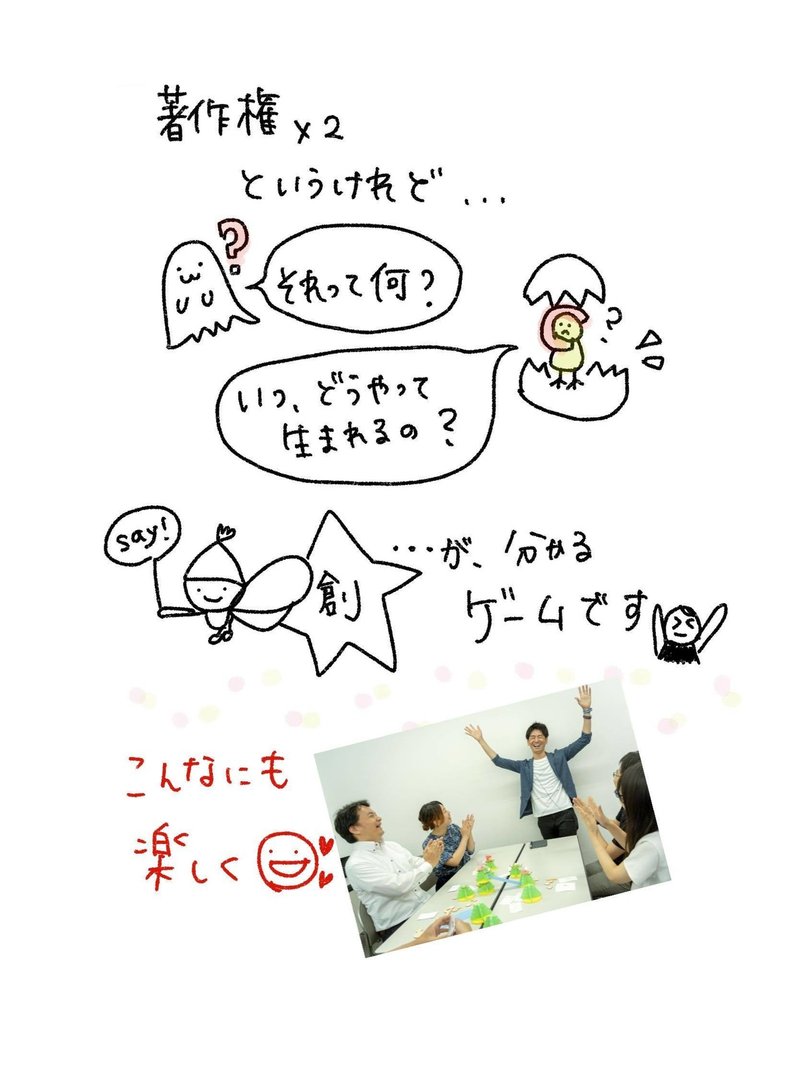 著作権 x2
というけれど...
?
それって何?
?
いつ、どうやって
生まれるの?
say!
創
...が、分かる
ゲームです
こんなにも
楽しく